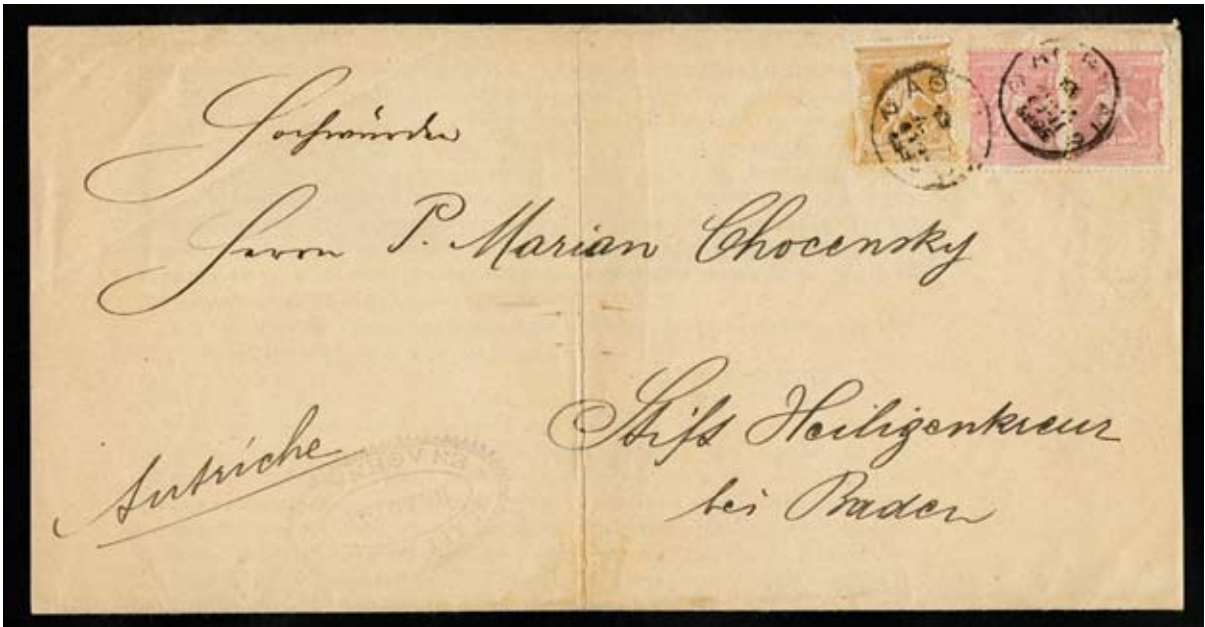 Hochwürden
Herrn P. Marian Chocensky
Stift Heiligenkreuz
bei Baden
Autriche